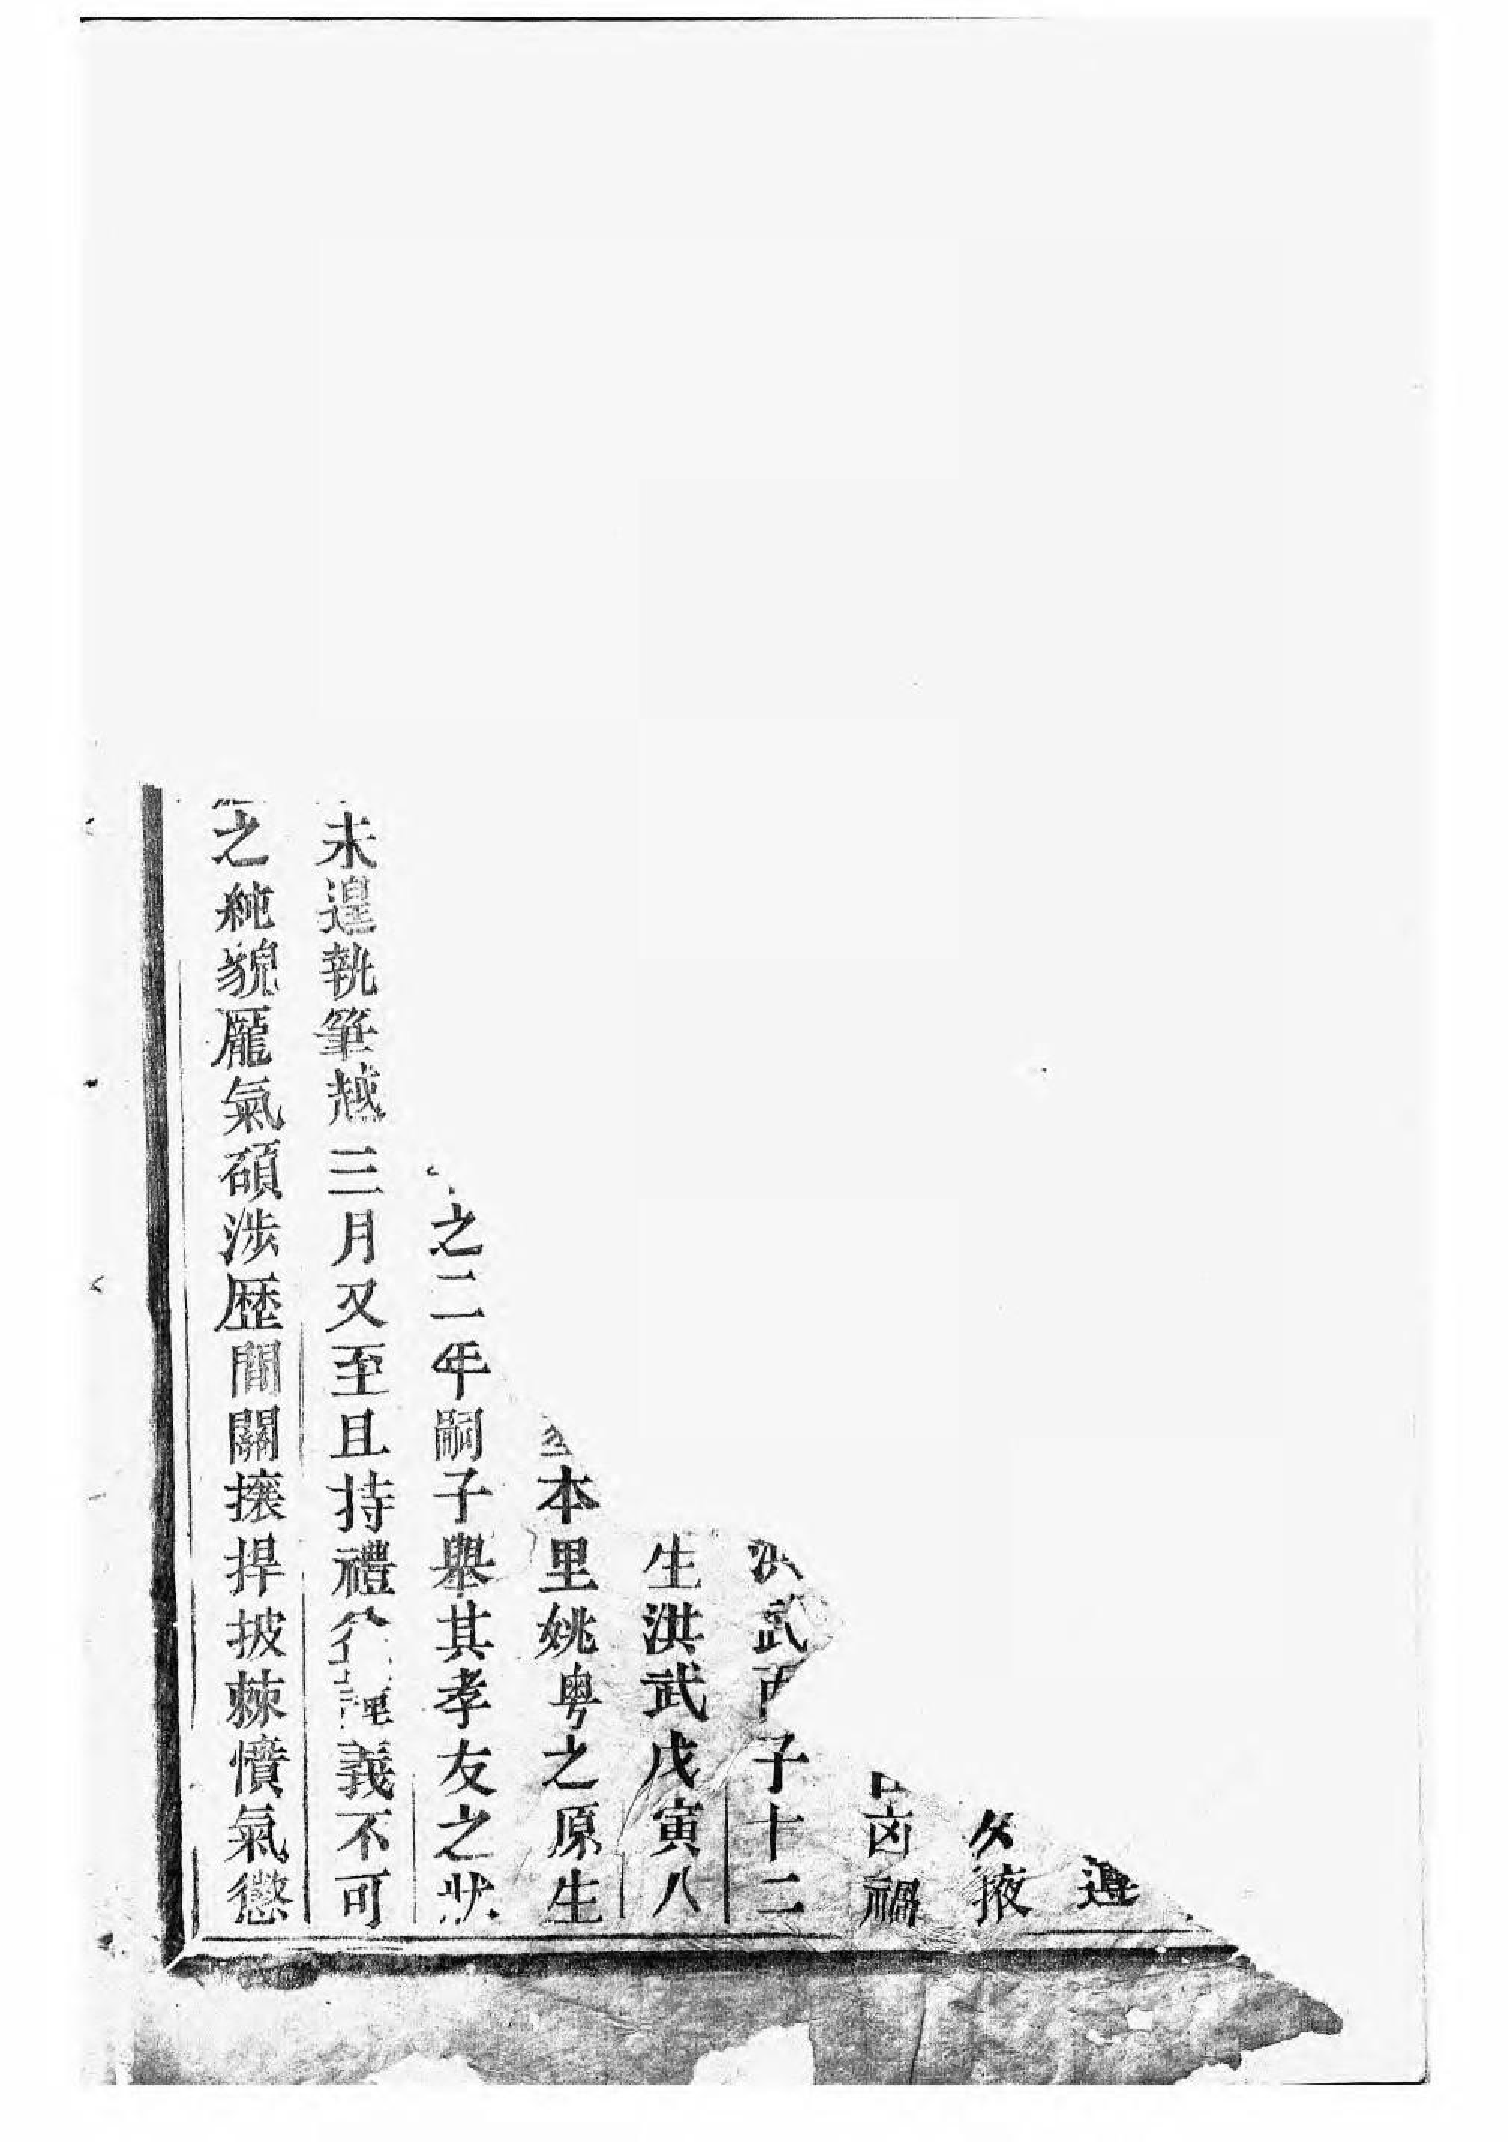 遵
掖
禍
洪武丙子十二
生洪武戊寅八
本里姚粤之原生
之二年嗣子舉其孝友之狀
未遑執筆越三月又至且持禮義不可
之純貌厖氣碩涉歷間關攘捍披棘憤氣懲